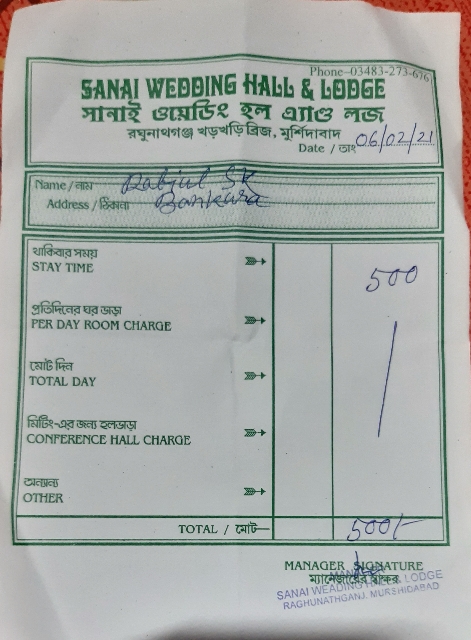 Phone-03483-273-676
SANAI WEDDING HALL & LODGE
সানাই ওয়েডিং হল এ্যাণ্ড লজ
রঘুনাথগঞ্জ খড়খড়ি ব্রিজ, মুর্শিদাবাদ
Date / তাং 06/02/21
Name / নাম Rabjul SK
Address / ঠিকানা Bankura
থাকিবার সময়
STAY TIME 500
প্রতিদিনের ঘর ভাড়া
PER DAY ROOM CHARGE
মোট দিন
TOTAL DAY
মিটিং-এর জন্য হলভাড়া
CONFERENCE HALL CHARGE
অন্যান্য
OTHER
TOTAL / মোট 500/-
MANAGER SIGNATURE
ম্যানেজারের স্বাক্ষর
MANAGER
SANAI WEADING HALL & LODGE
RAGHUNATHGANJ, MURSHIDABAD